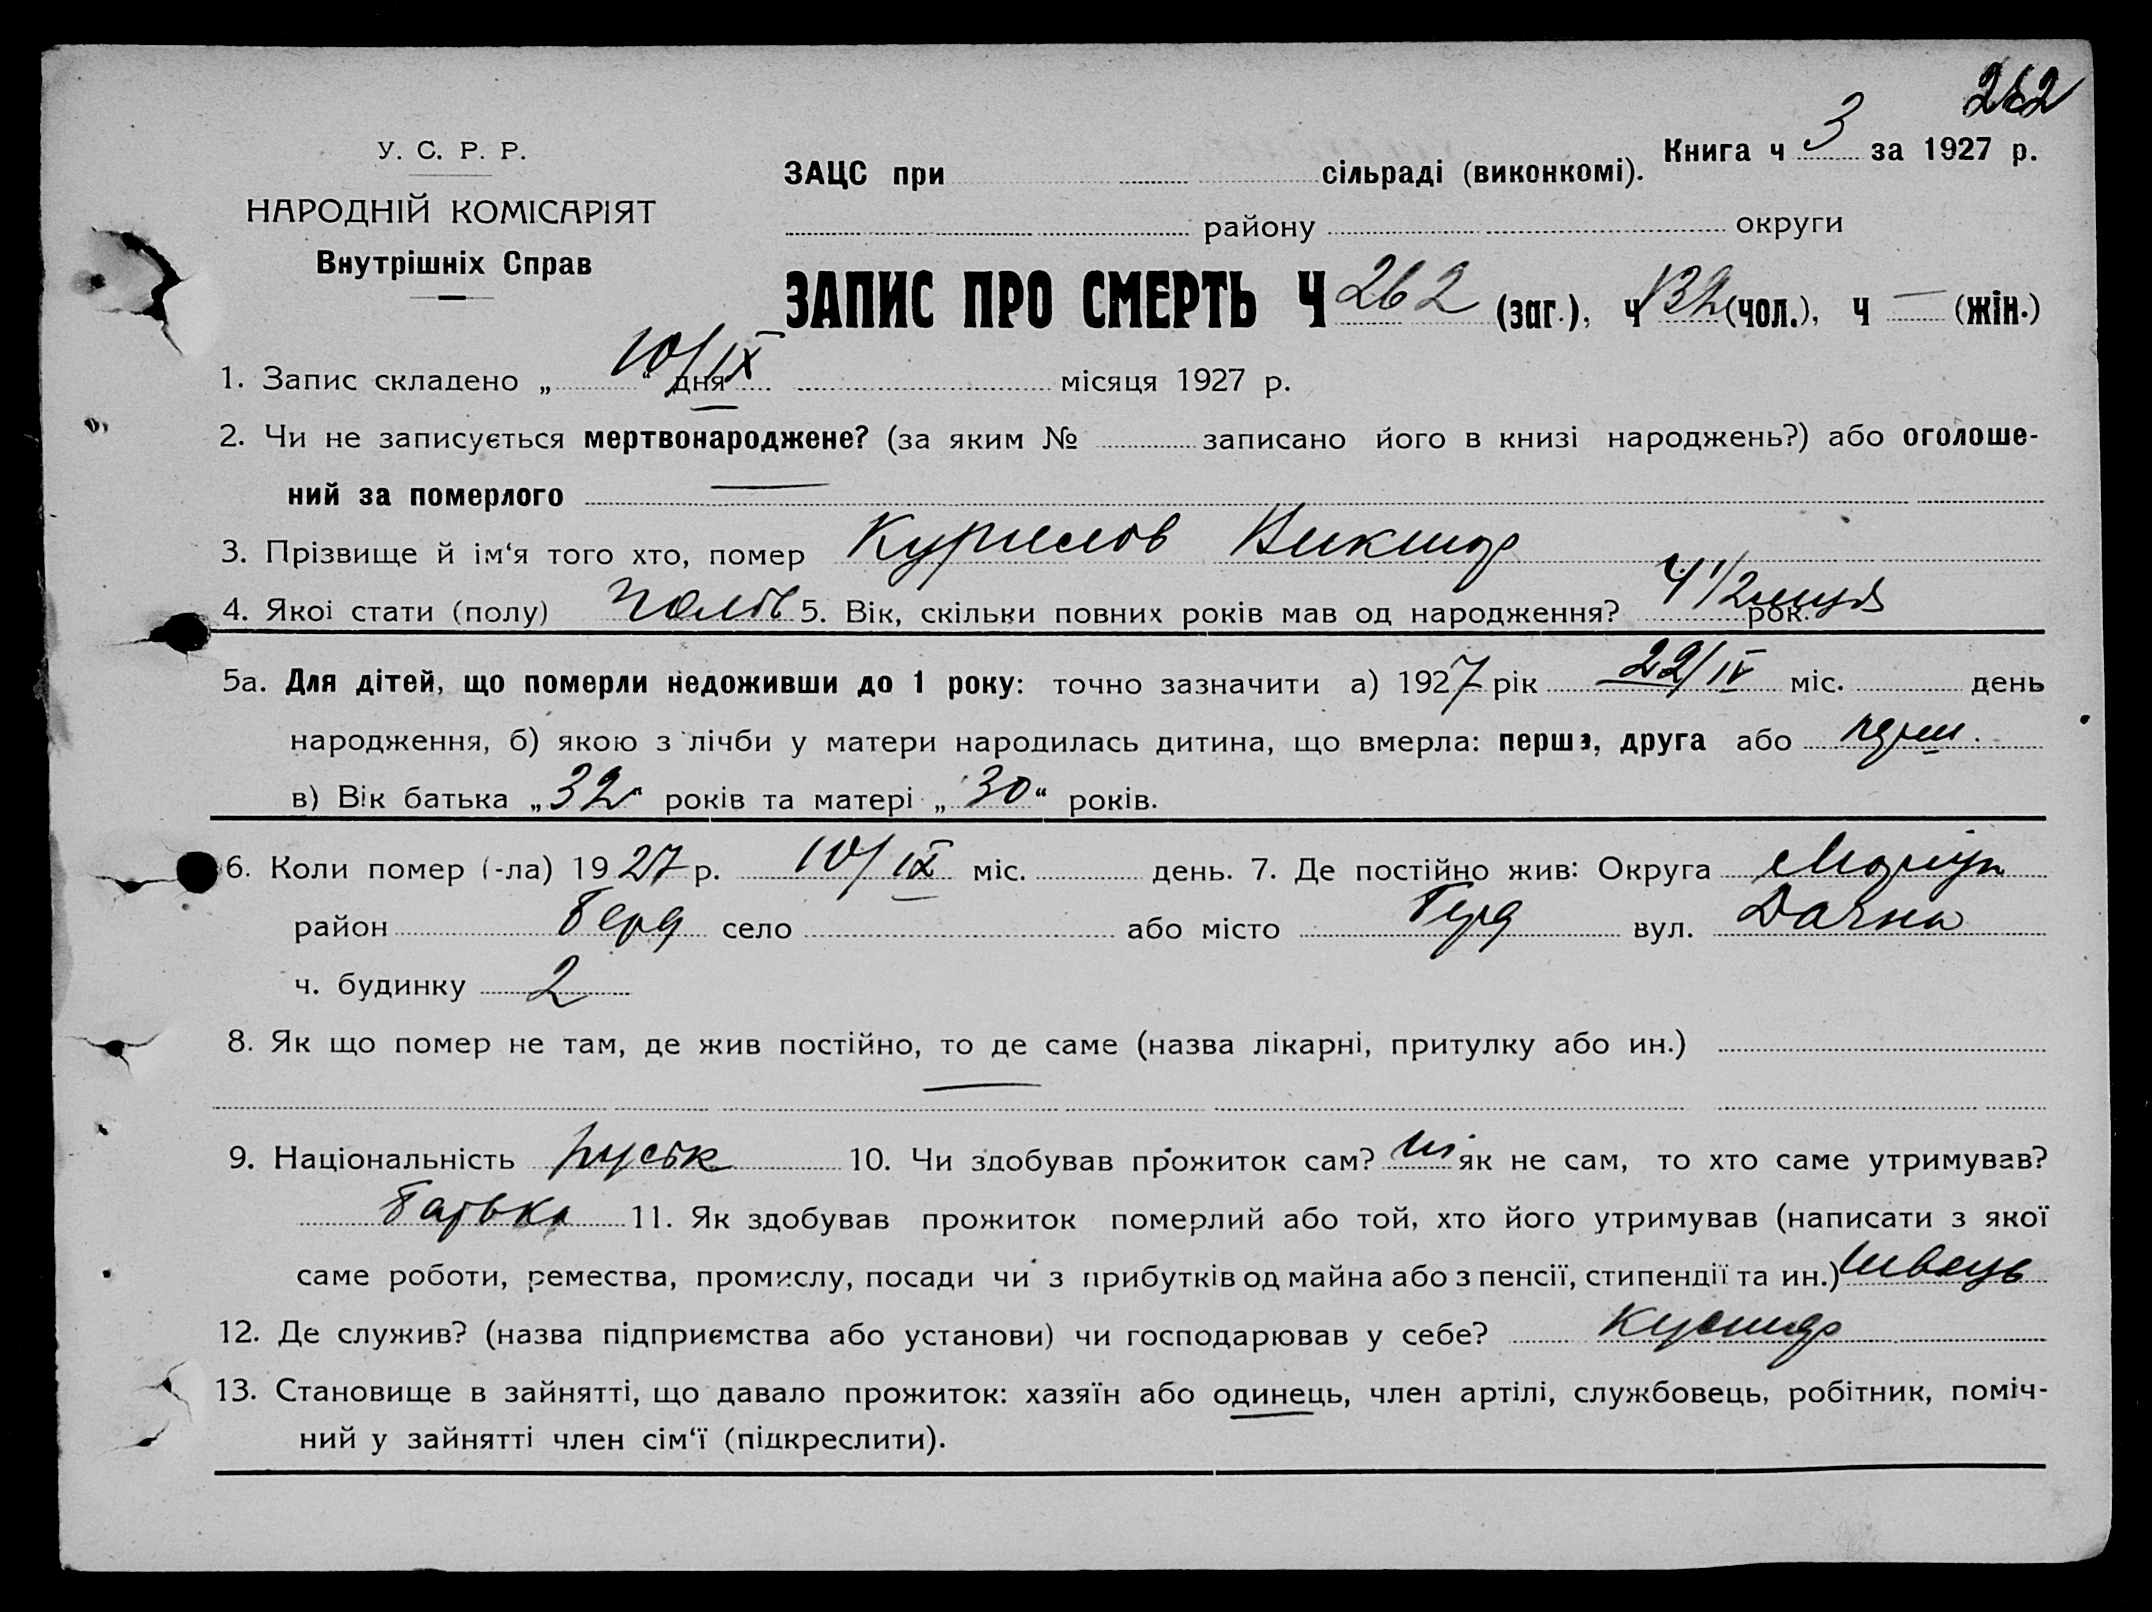 262
У. С. Р. Р.
НАРОДНІЙ КОМІСАРІЯТ
Внутрішніх Справ
Книга ч 3 за 1927 р.
ЗАЦС при сільраді (виконкомі).
району округи
ЗАПИС ПРО СМЕРТЬ Ч 262 (заг.), ч 132 (чол.), ч — (жін.)
1. Запис складено „10/IX“ дня місяця 1927 р.
2. Чи не записується мертвонароджене? (за яким № записано його в книзі народжень?) або оголоше-
ний за померлого —
3. Прізвище й ім‘я того хто, помер Курилов Виктор
4. Якоі стати (полу) чолов 5. Вік, скільки повних років мав од народження? 4 1/2 рок.
5а. Для дітей, що померли недоживши до 1 року: точно зазначити а) 1927 рік 22/IV міс. день
народження, б) якою з лічби у матери народилась дитина, що вмерла: перша, друга або
в) Вік батька „32“ років та матері „30“ років.
6. Коли помер (-ла) 1927 р. 10/IX міс. день. 7. Де постійно жив: Округа Маріуп
район Берд село або місто Берд вул. Дачна
ч. будинку 2
8. Як що помер не там, де жив постійно, то де саме (назва лікарні, притулку або ин.)
—
9. Національність руськ 10. Чи здобував прожиток сам? ні як не сам, то хто саме утримував?
батько 11. Як здобував прожиток померлий або той, хто його утримував (написати з якої
саме роботи, ремества, промислу, посади чи з прибутків од майна або з пенсії, стипендії та ин.) швець
12. Де служив? (назва підприємства або установи) чи господарював у себе? Кустар
13. Становище в зайнятті, що давало прожиток: хазяїн або одинець, член артілі, службовець, робітник, поміч-
ний у зайнятті член сім‘ї (підкреслити).